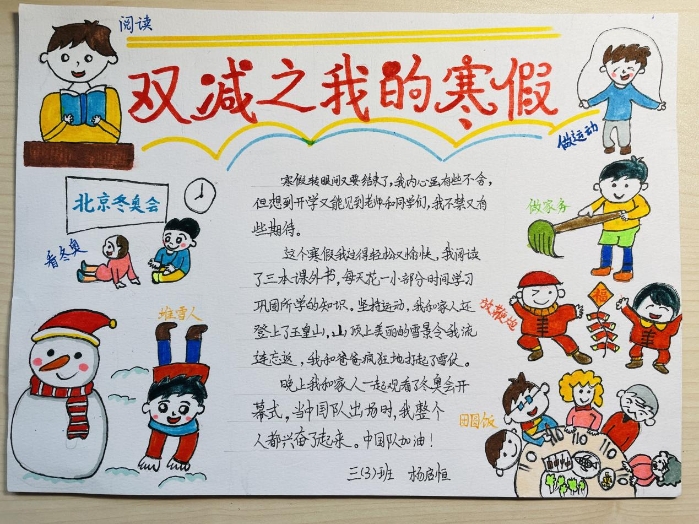 阅读
双减之我的寒假
做运动
北京冬奥会
看冬奥
做家务
堆雪人
放鞭炮
福
团圆饭
寒假转眼间又要结束了,我内心虽有些不舍,
但想到开学又能见到老师和同学们,我不禁又有
些期待。
这个寒假我过得轻松又愉快,我阅读
了三本课外书,每天花一小部分时间学习
巩固所学的知识。坚持运动,我和家人还
登上了玉皇山,山顶上美丽的雪景令我流
连忘返,我和爸爸疯狂地打起了雪仗。
晚上我和家人一起观看了冬奥会开
幕式,当中国队出场时,我整个
人都兴奋了起来。中国队加油!
三(3)班 杨启恒